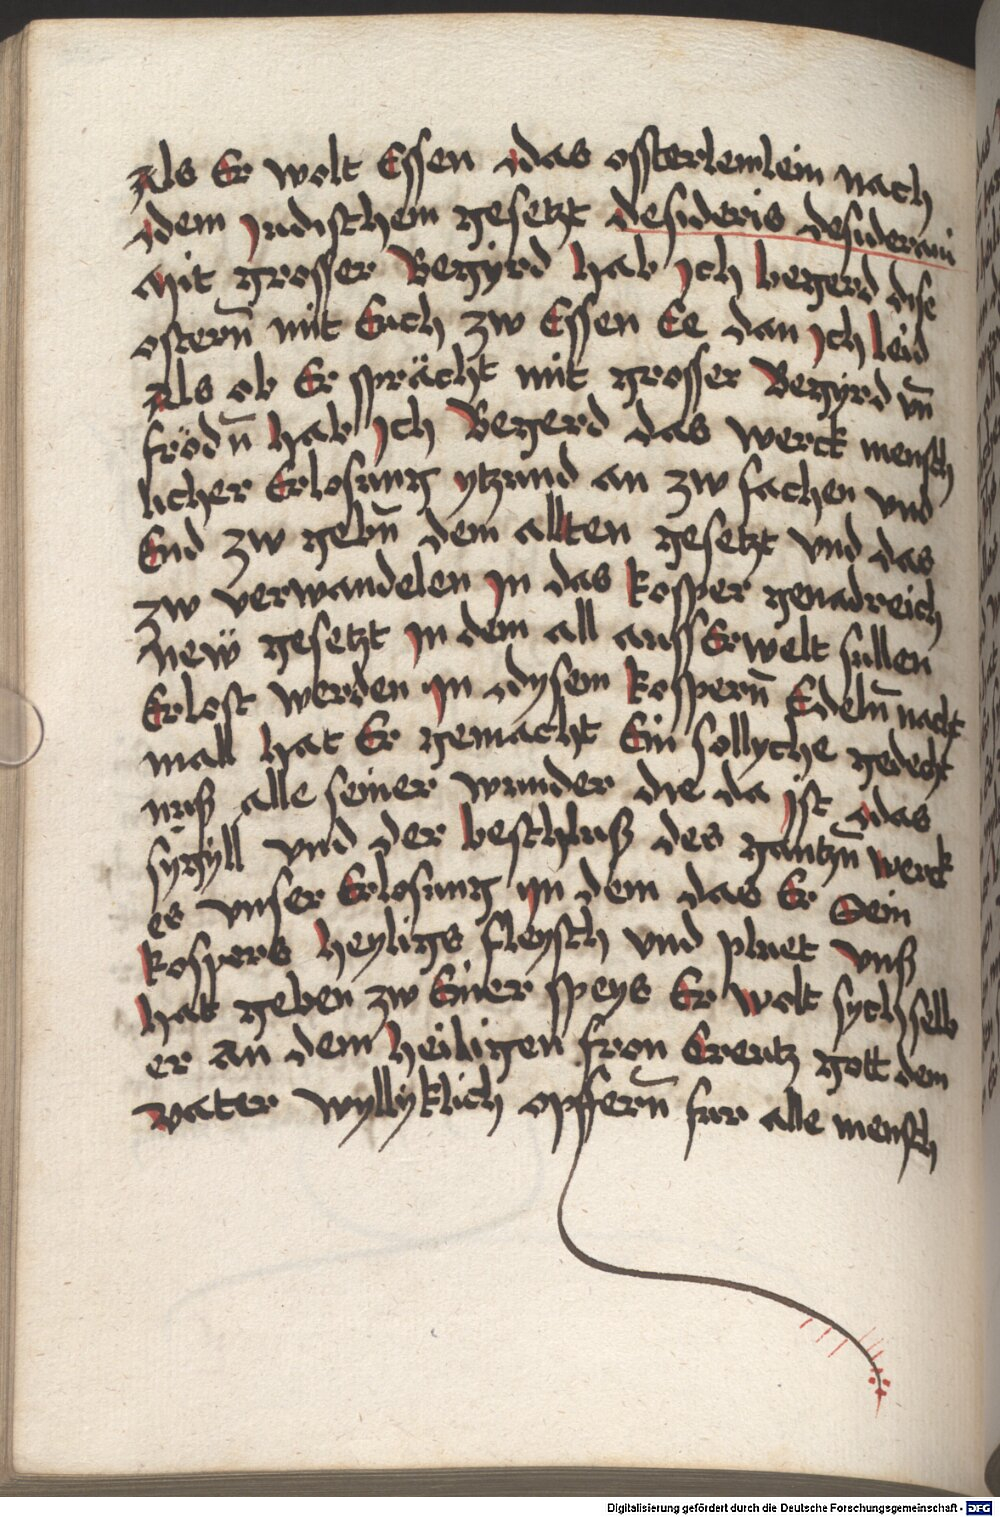 Als Er wolt Essen das ossterlemlein nach
dem Judischem gesetzt desideris desideraui
Mit grosser Begyrd hab Jch begerd dise
ostern̄ mit Euch zw Essen Ee dan Jch leid
Als ob Er sprächt mit grosser Begyrd vn̄
frödn̄ hab Jch Begerd das werck mensch
licher Erlosung ytzund an zw fachen vnd
End zw gebn̄ dem allten gesetzt vnd das
zw verwandelen Jn das kosper genadreich
New gesetzt Jn dem all ausserwelt sullen
Erlost werden Jn dysem kospern̄ Edeln̄ nacht
mall hat Er gemacht Ein sollyche gedecht
nuß alle seiner wunder die da Jst das
sygyll vnd der beschluß des gantzn̄ werck
es vnser Erlosung Jn dem das Er Sein
kospers heyligs fleysch vnd pluet vnß
hat geben zw Einer speys Er wolt sych selb
er an dem heiligen fron Creutz gott dem
vater wyllyklich opffern̄ fur alle mensch
Digitalisierung gefördert durch die Deutsche Forschungsgemeinschaft - DFG